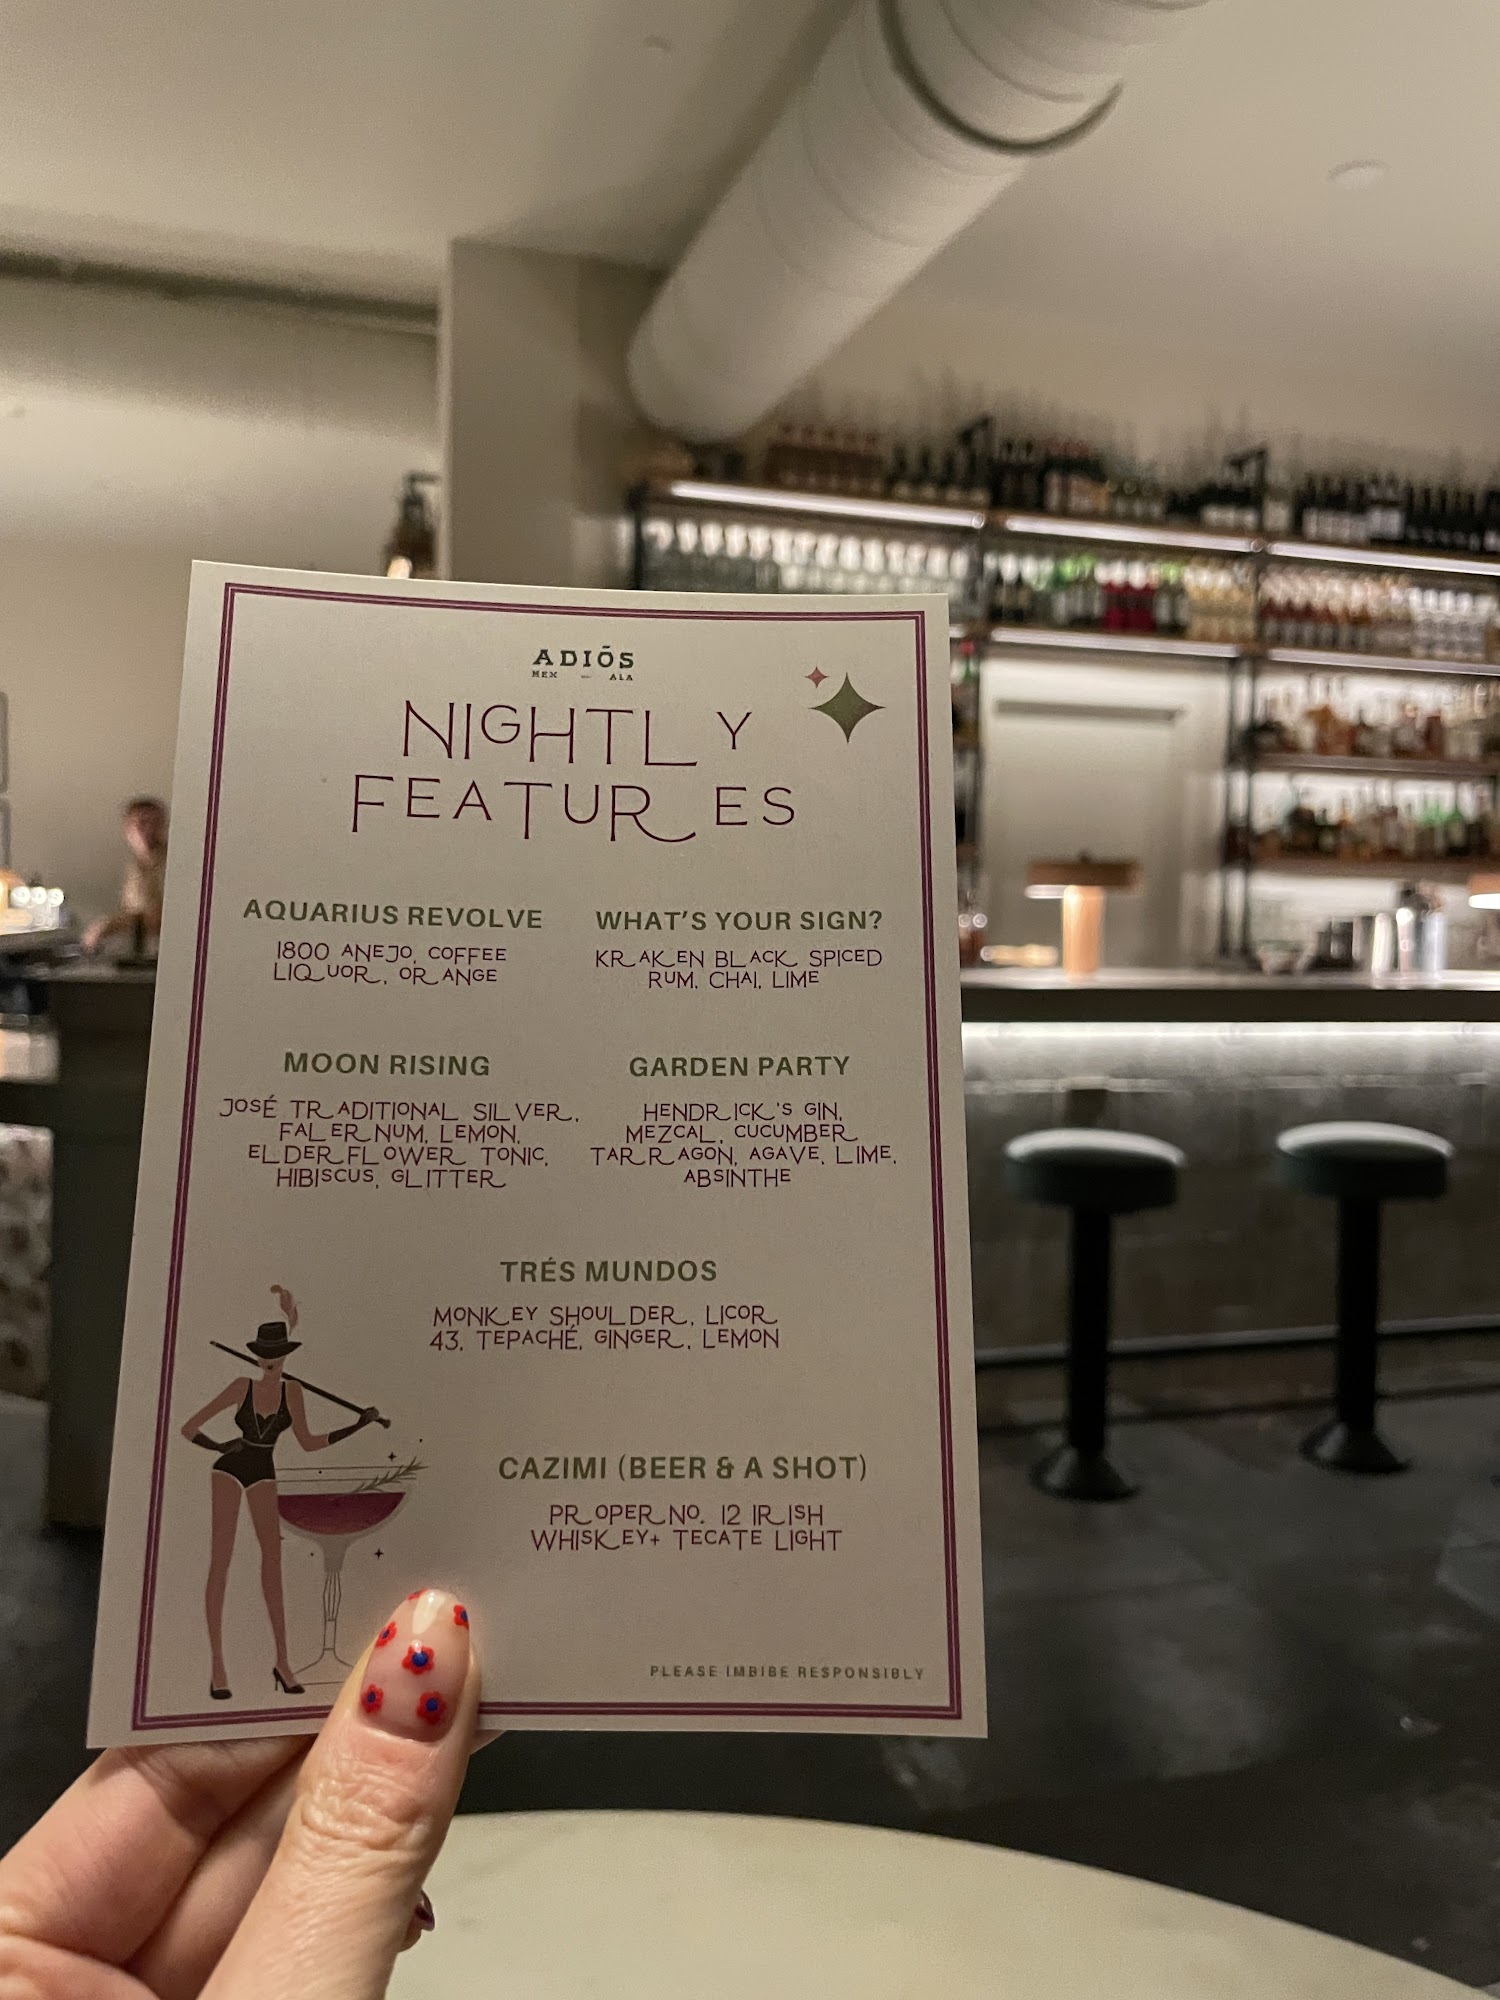 ADIŌS
MEX — ALA
NIGHTLY
FEATURES
AQUARIUS REVOLVE
1800 ANEJO, COFFEE
LIQUOR, ORANGE
WHAT'S YOUR SIGN?
KRAKEN BLACK SPICED
RUM, CHAI, LIME
MOON RISING
JOSÉ TRADITIONAL SILVER,
FALERNUM, LEMON,
ELDERFLOWER TONIC,
HIBISCUS, GLITTER
GARDEN PARTY
HENDRICK'S GIN,
MEZCAL, CUCUMBER
TARRAGON, AGAVE, LIME,
ABSINTHE
TRÉS MUNDOS
MONKEY SHOULDER, LICOR
43, TEPACHÉ, GINGER, LEMON
CAZIMI (BEER & A SHOT)
PROPER NO. 12 IRISH
WHISKEY+ TECATE LIGHT
PLEASE IMBIBE RESPONSIBLY